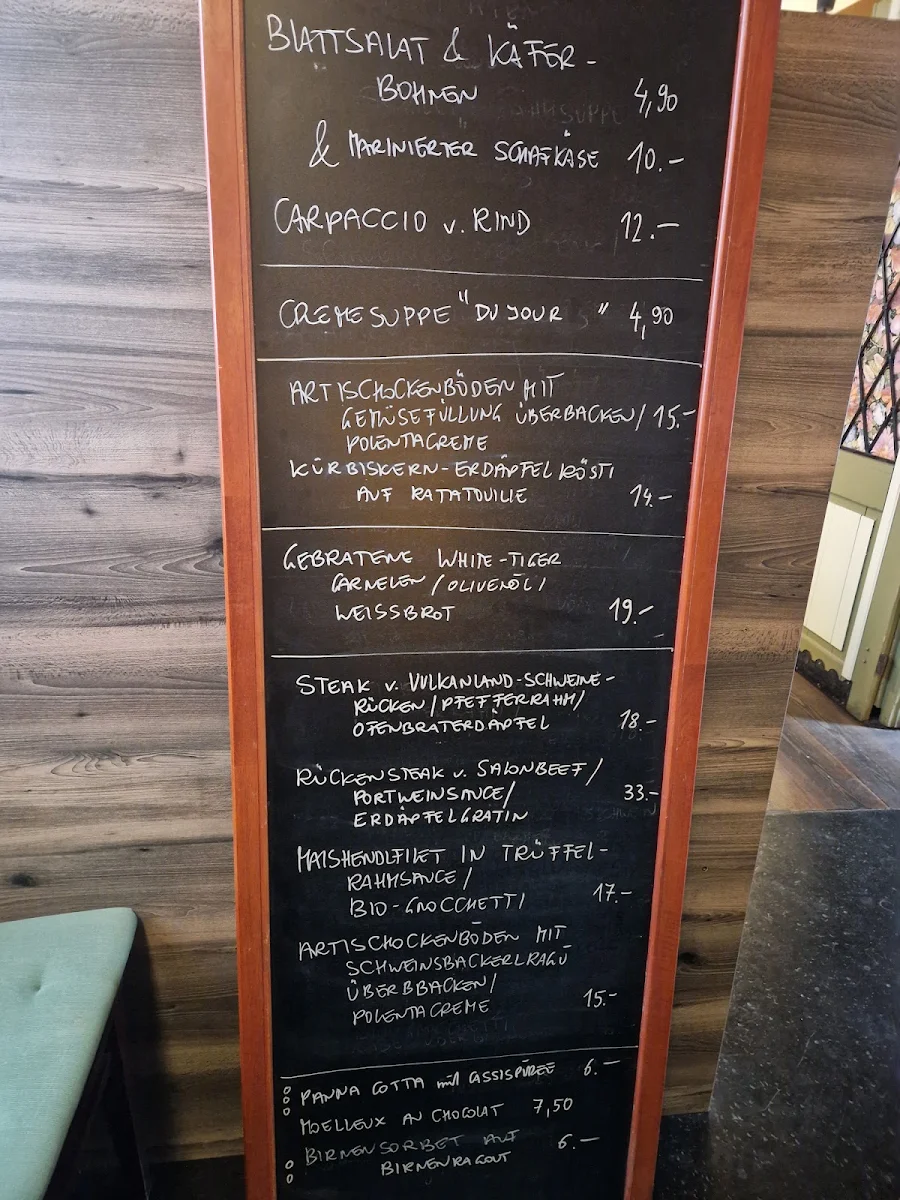 BLATTSALAT & KÄFER-
BOHNEN 4,90
& MARINIERTER SCHAFKÄSE 10.-
CARPACCIO v. RIND 12.-
CREMESUPPE "DU JOUR" 4,90
ARTISCHOCKENBÖDEN MIT
GEMÜSEFÜLLUNG ÜBERBACKEN/ 15.-
POLENTACREME
KÜRBISKERN-ERDÄPFELRÖSTI
AUF RATATOUILLE 14.-
GEBRATENE WHITE-TIGER
GARNELEN/OLIVENÖL/
WEISSBROT 19.-
STEAK v. VULKANLAND-SCHWEINE-
RÜCKEN/PFEFFERRAHM/
OFENBRATERDÄPFEL 18.-
RÜCKENSTEAK v. SALONBEEF/
PORTWEINSAUCE/ 33.-
ERDÄPFELGRATIN
MAISHENDLFILET IN TRÜFFEL-
RAHMSAUCE/
BIO-GNOCCHETTI 17.-
ARTISCHOCKENBÖDEN MIT
SCHWEINSBACKERLRAGÚ
ÜBERBBACKEN/
POLENTACREME 15.-
PANNA COTTA mit CASSISPÜREE 6.-
MOELLEUX AU CHOCOLAT 7,50
BIRNENSORBET AUF 6.-
BIRNENRAGOUT